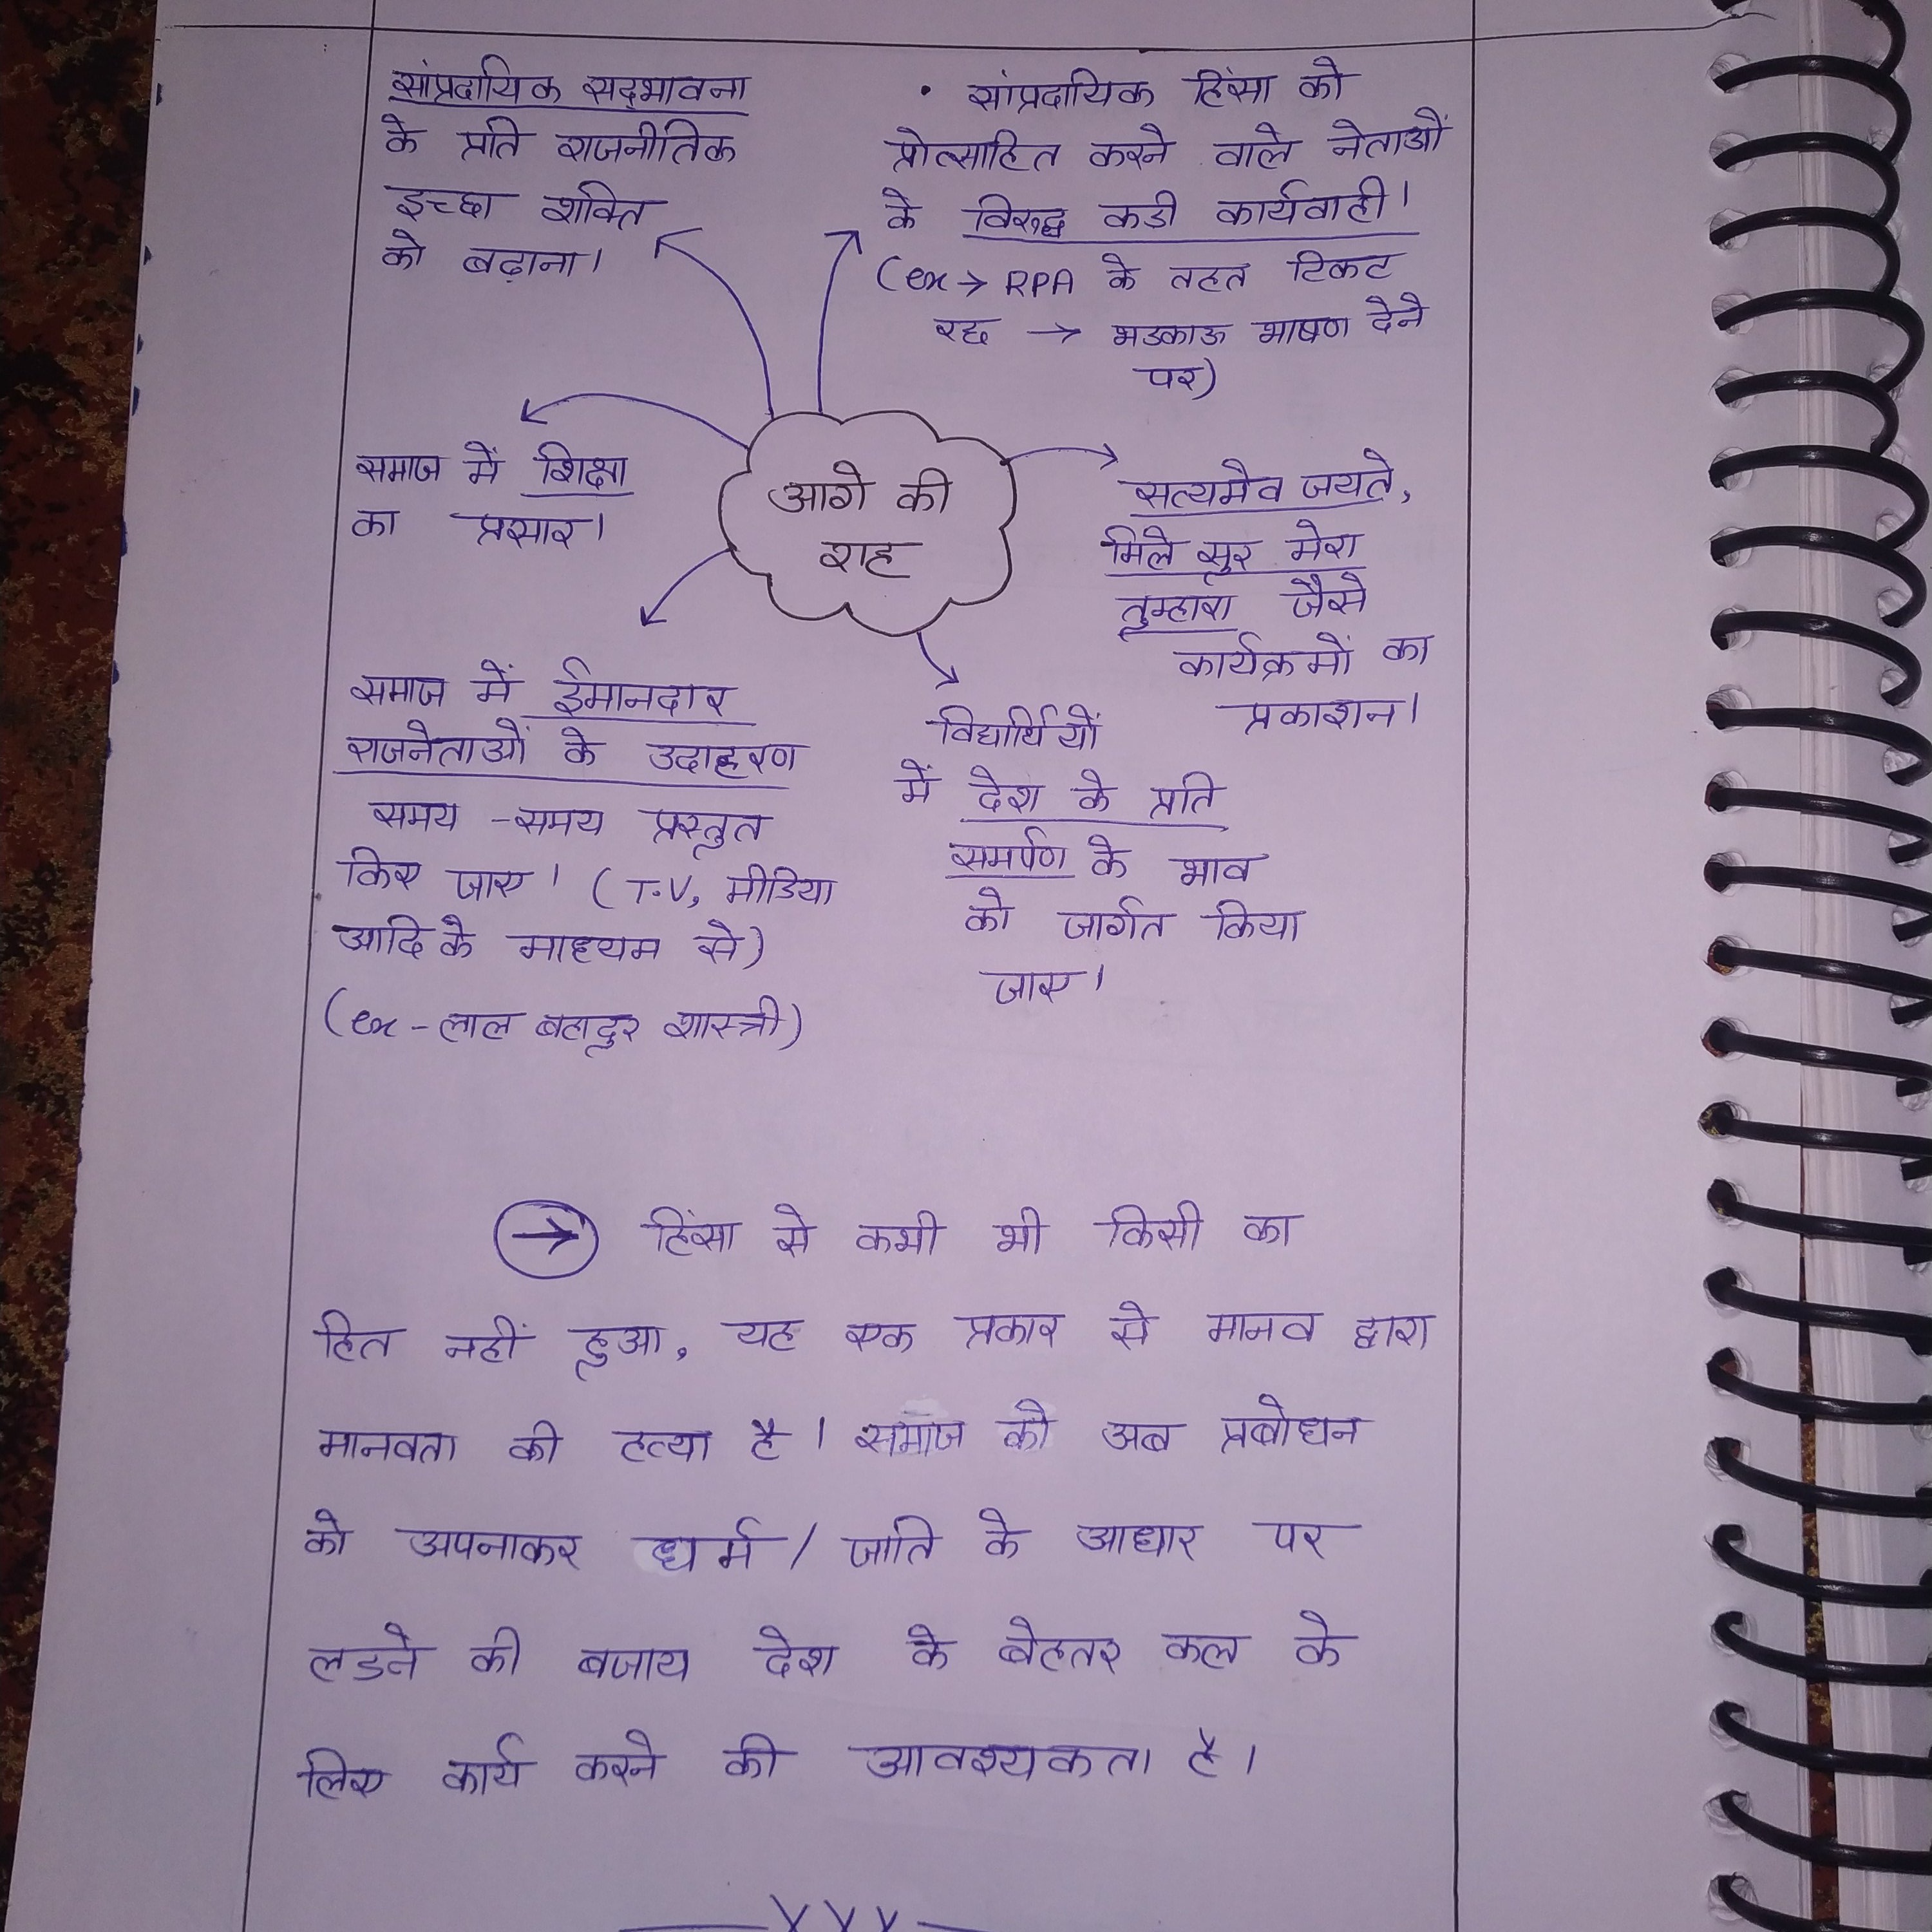 सांप्रदायिक सद्भावना
के प्रति राजनीतिक
इच्छा शक्ति
को बढ़ाना।
• सांप्रदायिक हिंसा को
प्रोत्साहित करने वाले नेताओं
के विरुद्ध कडी कार्यवाही।
(ex→ RPA के तहत टिकट
रद्द → भडकाऊ भाषण देने
पर)
आगे की
राह
समाज में शिक्षा
का प्रसार।
सत्यमेव जयते,
मिले सुर मेरा
तुम्हारा जैसे
कार्यक्रमों का
प्रकाशन।
समाज में ईमानदार
राजनेताओं के उदाहरण
समय -समय प्रस्तुत
किए जाए। (T.V, मीडिया
आदि के माध्यम से)
(ex - लाल बहादुर शास्त्री)
विद्यार्थियों
में देश के प्रति
समर्पण के भाव
को जार्गत किया
जाए।
→ हिंसा से कभी भी किसी का
हित नहीं हुआ, यह एक प्रकार से मानव द्वारा
मानवता की हत्या है। समाज को अब प्रबोधन
को अपनाकर धर्म / जाति के आधार पर
लडने की बजाय देश के बेहतर कल के
लिए कार्य करने की आवश्यकता है।